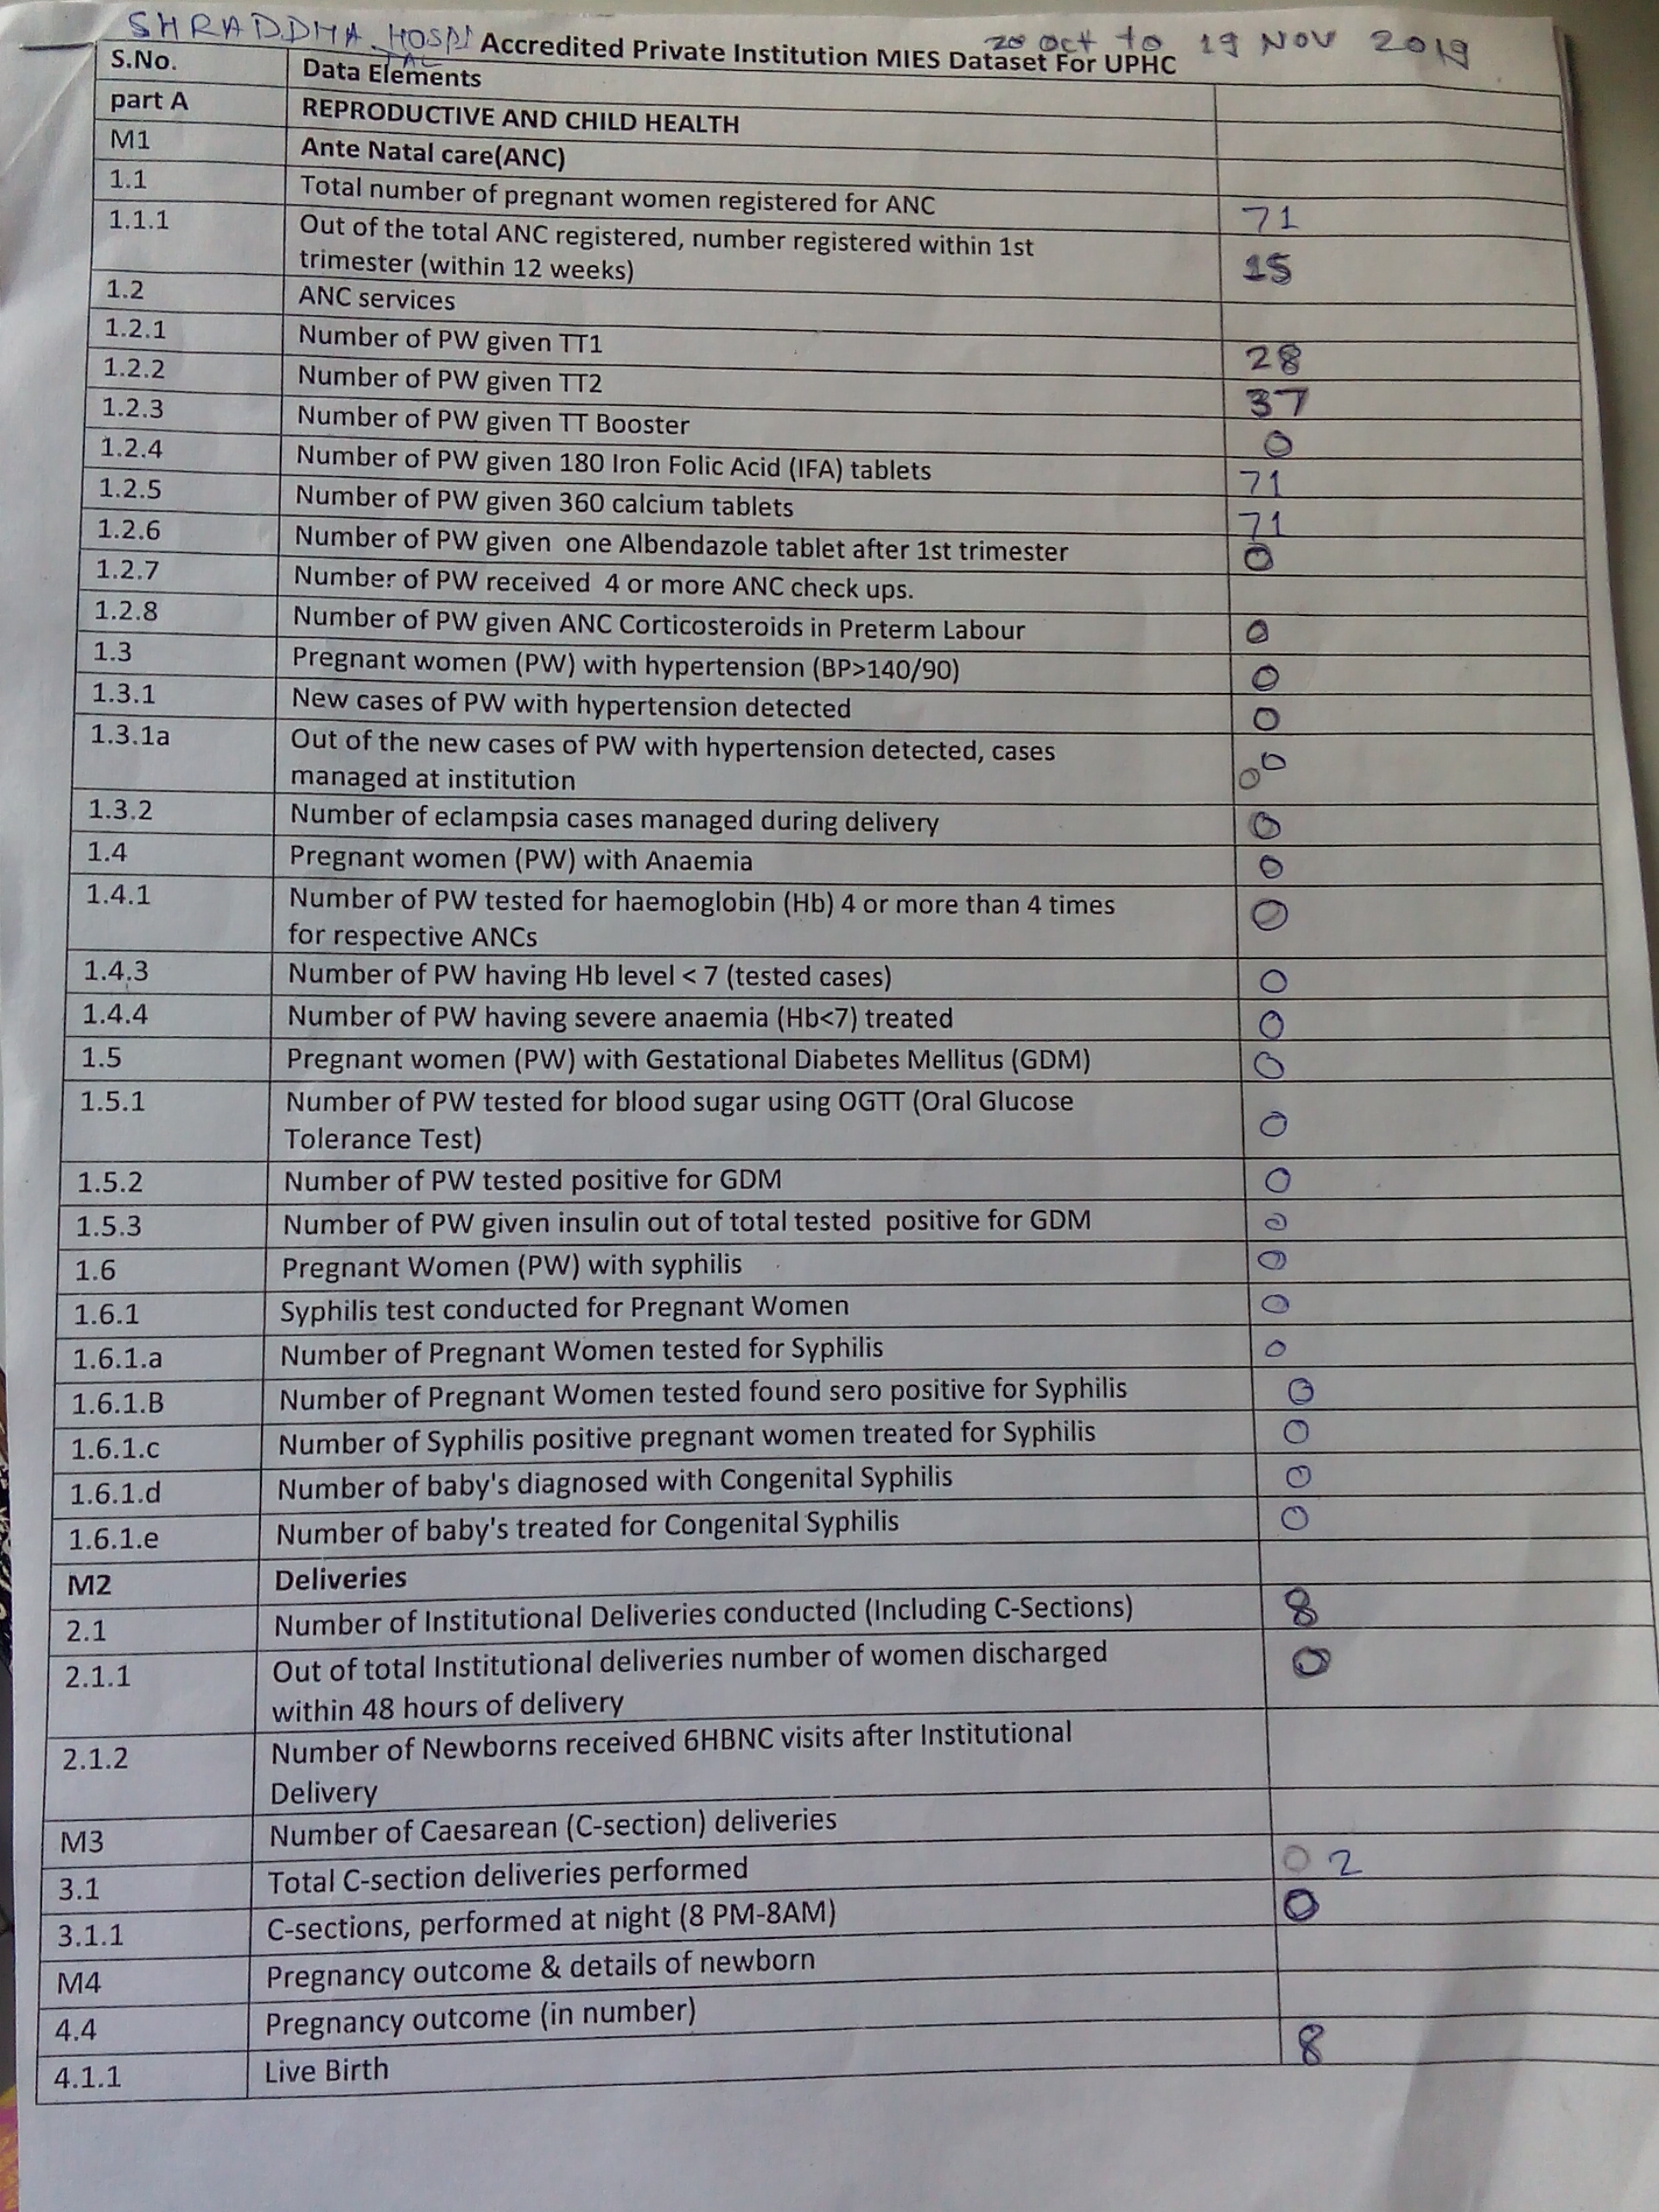 SHRADDHA HOSPITAL 20 Oct to 19 NOV 2019
Accredited Private Institution MIES Dataset For UPHC
S.No. Data Elements
part A REPRODUCTIVE AND CHILD HEALTH
M1 Ante Natal care(ANC)
1.1 Total number of pregnant women registered for ANC 71
1.1.1 Out of the total ANC registered, number registered within 1st
trimester (within 12 weeks) 15
1.2 ANC services
1.2.1 Number of PW given TT1 28
1.2.2 Number of PW given TT2 37
1.2.3 Number of PW given TT Booster 0
1.2.4 Number of PW given 180 Iron Folic Acid (IFA) tablets 71
1.2.5 Number of PW given 360 calcium tablets 71
1.2.6 Number of PW given one Albendazole tablet after 1st trimester 0
1.2.7 Number of PW received 4 or more ANC check ups.
1.2.8 Number of PW given ANC Corticosteroids in Preterm Labour 0
1.3 Pregnant women (PW) with hypertension (BP>140/90) 0
1.3.1 New cases of PW with hypertension detected 0
1.3.1a Out of the new cases of PW with hypertension detected, cases 0
managed at institution 0
1.3.2 Number of eclampsia cases managed during delivery 0
1.4 Pregnant women (PW) with Anaemia 0
1.4.1 Number of PW tested for haemoglobin (Hb) 4 or more than 4 times 0
for respective ANCs
1.4.3 Number of PW having Hb level < 7 (tested cases) 0
1.4.4 Number of PW having severe anaemia (Hb<7) treated 0
1.5 Pregnant women (PW) with Gestational Diabetes Mellitus (GDM) 0
1.5.1 Number of PW tested for blood sugar using OGTT (Oral Glucose
Tolerance Test) 0
1.5.2 Number of PW tested positive for GDM 0
1.5.3 Number of PW given insulin out of total tested positive for GDM 0
1.6 Pregnant Women (PW) with syphilis 0
1.6.1 Syphilis test conducted for Pregnant Women 0
1.6.1.a Number of Pregnant Women tested for Syphilis 0
1.6.1.B Number of Pregnant Women tested found sero positive for Syphilis 0
1.6.1.c Number of Syphilis positive pregnant women treated for Syphilis 0
1.6.1.d Number of baby's diagnosed with Congenital Syphilis 0
1.6.1.e Number of baby's treated for Congenital Syphilis 0
M2 Deliveries
2.1 Number of Institutional Deliveries conducted (Including C-Sections) 8
2.1.1 Out of total Institutional deliveries number of women discharged 0
within 48 hours of delivery
2.1.2 Number of Newborns received 6HBNC visits after Institutional
Delivery
M3 Number of Caesarean (C-section) deliveries
3.1 Total C-section deliveries performed 0 2
3.1.1 C-sections, performed at night (8 PM-8AM) 0
M4 Pregnancy outcome & details of newborn
4.4 Pregnancy outcome (in number)
4.1.1 Live Birth 8